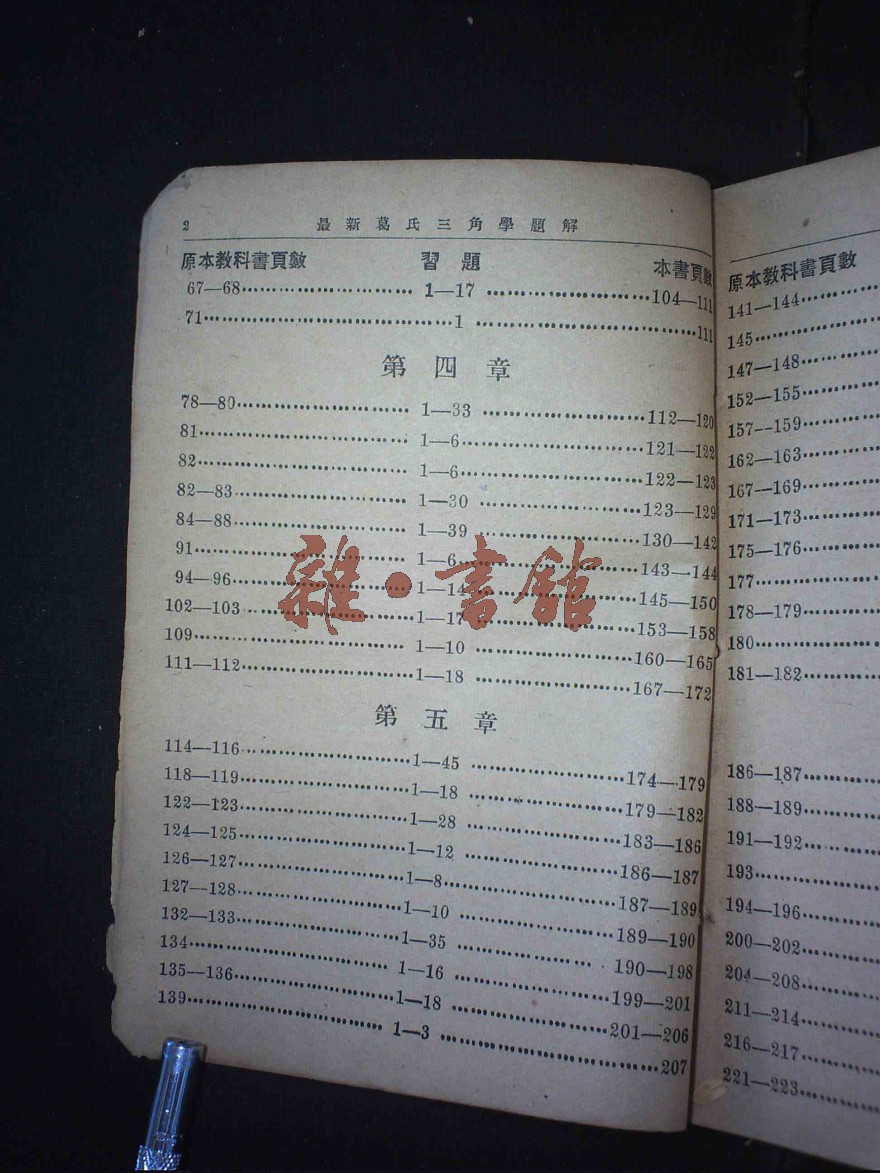 2 最新葛氏三角學題解
原本教科書頁數 習題 本書頁數
67—68 1—17 104—111
71 1 111
第四章
78—80 1—33 112—120
81 1—6 121—122
82 1—6 122—123
82—83 1—30 123—129
84—88 1—39 130—142
91 1—6 143—144
94—96 1—14 145—150
102—103 1—17 153—158
109 1—10 160—165
111—112 1—18 167—172
第五章
114—116 1—45 174—179
118—119 1—18 179—182
122—123 1—28 183—186
124—125 1—12 186—187
126—127 1—8 187—189
127—128 1—10 189—190
132—133 1—35 190—198
134 1—16 199—201
135—136 1—18 201—206
139 1—3 207
雜·書館
原本教科書頁數
141—144
145
147—148
152—155
157—159
162—163
167—169
171—173
175—176
177
178—179
180
181—182
186—187
188—189
191—192
193
194—196
200—202
204—208
211—214
216—217
221—223